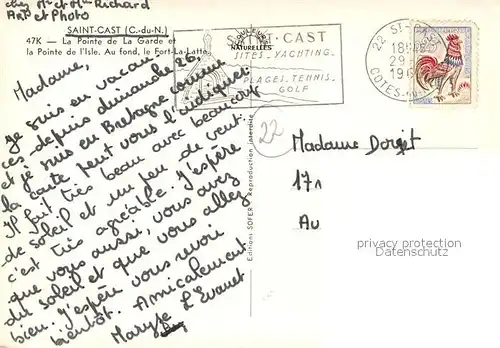 chez Mr et Mme Richard
Art et Photo
SAINT-CAST (C.-du-N.)
47K — La Pointe de La Garde et
la Pointe de l'Isle. Au fond, le Fort-La-Latte
Madame,
Je suis en vacan-
ces depuis dimanche 26,
et je suis en Bretagne comme
la carte peut vous l'indiquer.
Il fait très beau avec beaucoup
de soleil et un peu de vent.
c'est très agréable. J'espère
que vous aussi, vous avez
du soleil et que vous allez
bien. J'espère vous revoir
bientôt. Amicalement
Maryse L'Evanet
COULEURS
NATURELLES
ST-CAST
SITES. YACHTING.
PLAGES. TENNIS.
GOLF
22 ST-CAST
18H
29
196
COTES-DU
22
Editions SOFER Reproduction interdite
Madame Dorget
17
Au
privacy protection
www.delcampe.net